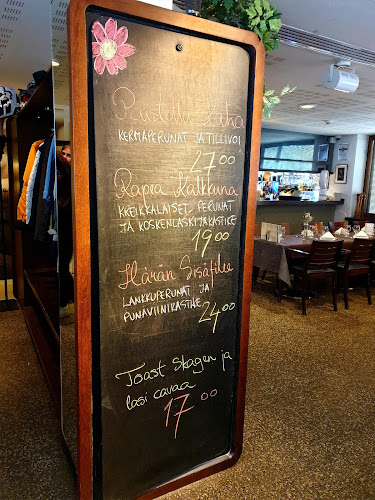 Paistettu Kuha
KERMAPERUNAT JA TILLIVOI
27.00
Rapea Kalkkuna
KREIKKALAISET PERUNAT
JA KOSKENLASKIJAKASTIKE
19.00
Härän Sisäfilee
LANKKUPERUNAT JA
PUNAVIINIKASTIKE
24.00
Toast Skagen ja
lasi cavaa
17.00